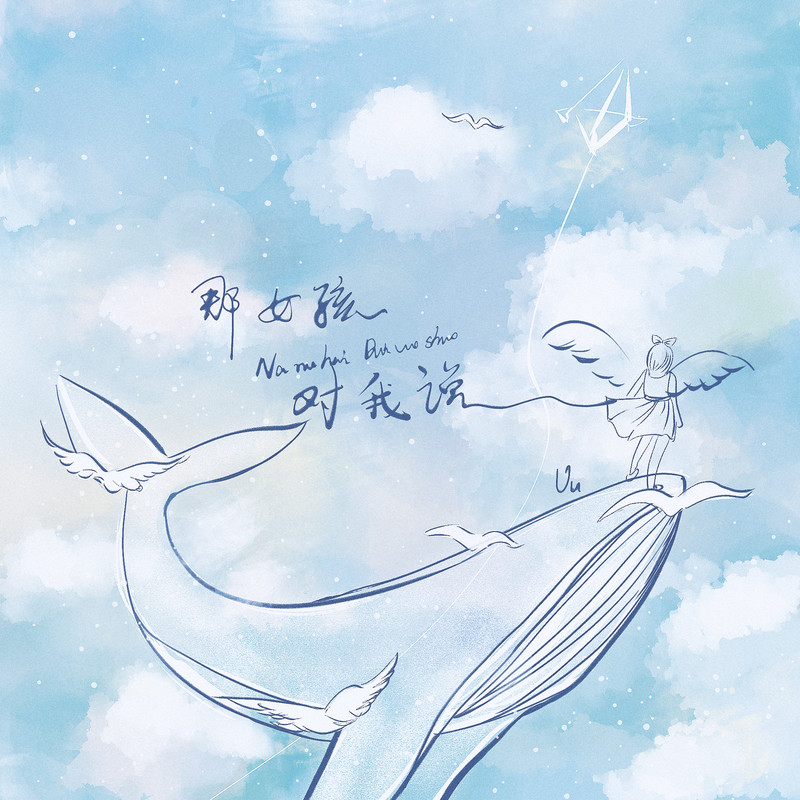 那女孩
Na nu hai Dui wo shuo
对我说
Uu